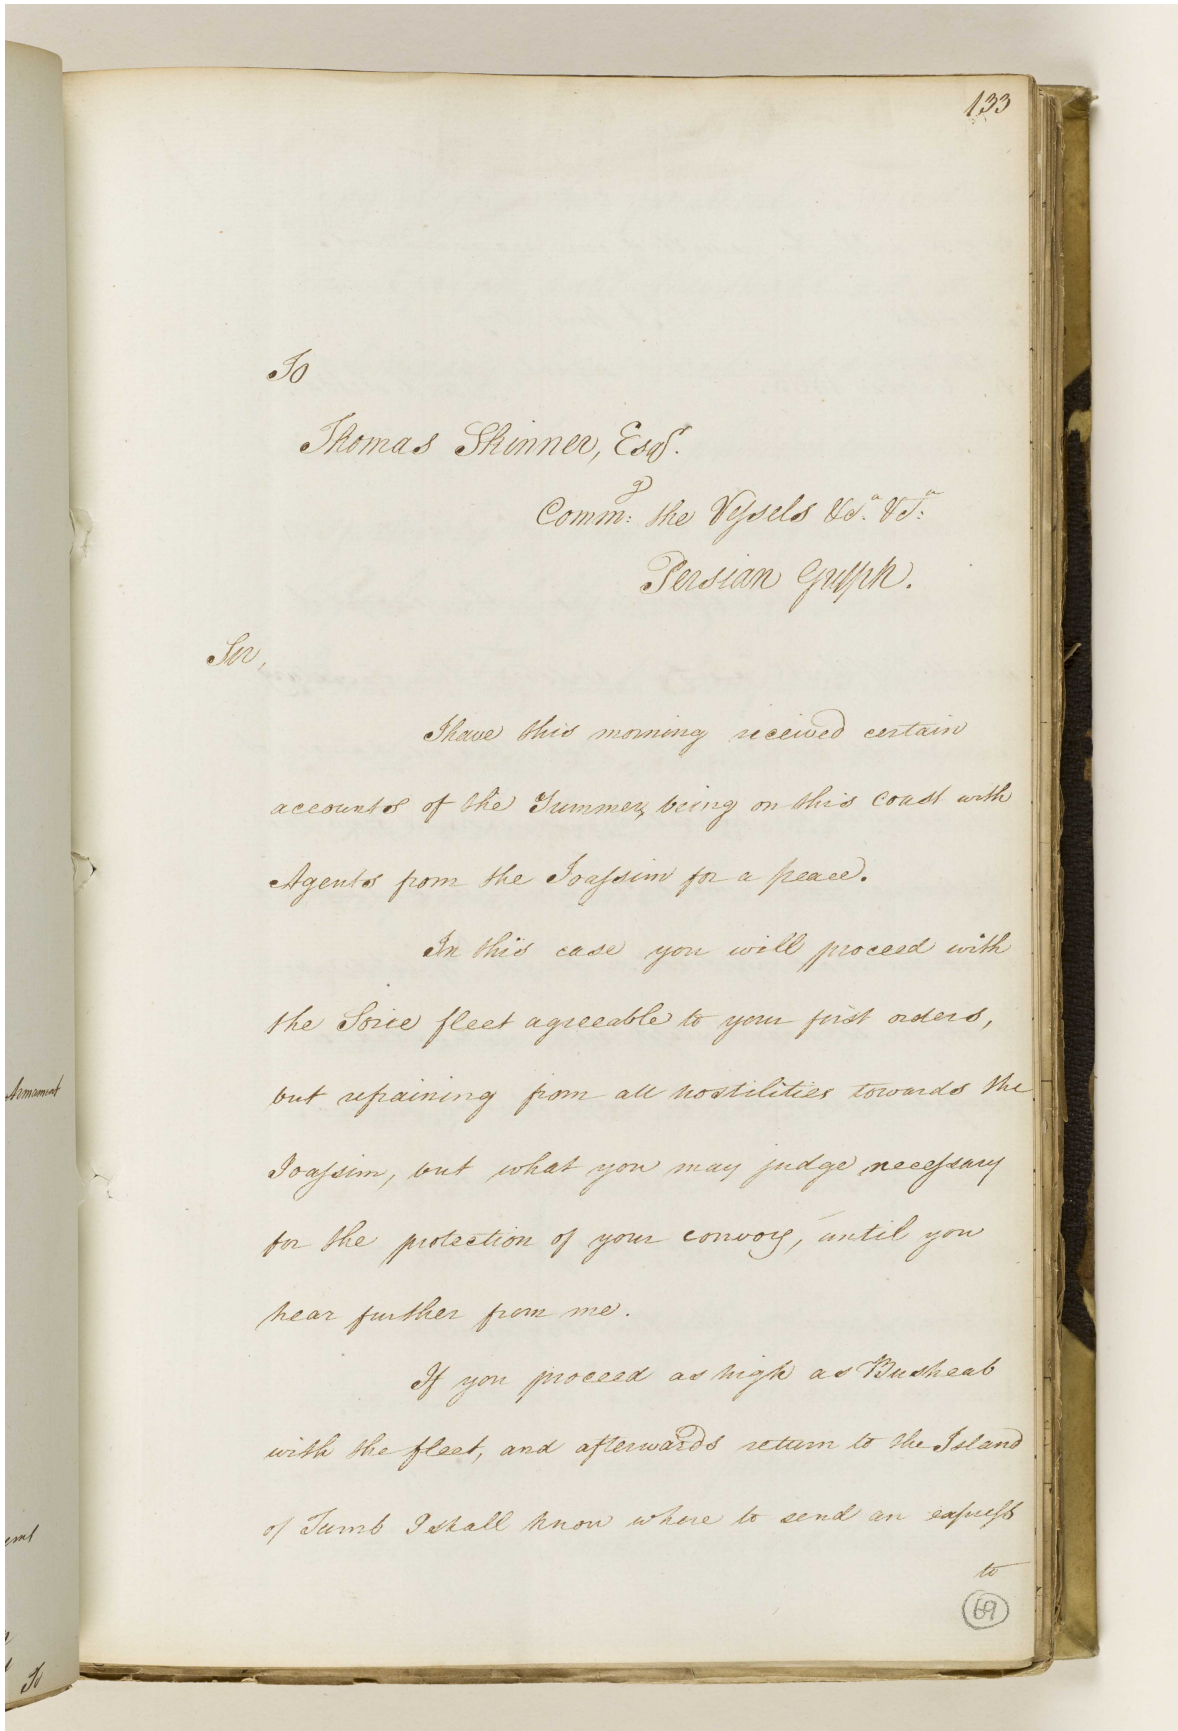 133
To
Thomas Skinner, Esqr.
Commg: the Vessels &ca. &ca:
Persian Gulph.
Sir,
I have this morning received certain
accounts of the Trimmer, being on this coast with
Agents from the Joassim for a peace.
In this case you will proceed with
the fleet agreeable to your first orders,
but refraining from all hostilities towards the
Joassim, but what you may judge necessary
for the protection of your convoy, until you
hear further from me.
If you proceed as high as Busheab
with the fleet, and afterwards return to the Island
of Tumb I shall know where to send an express
to
69
Armament
To